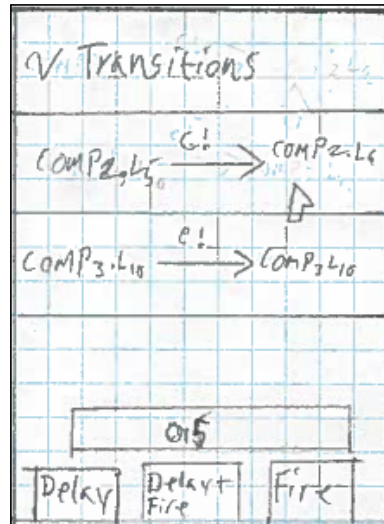 Transitions
G!
COMP2.L5 COMP2.L6
e!
COMP3.L10 COMP3L10
Delay Delay+ Fire
Fire